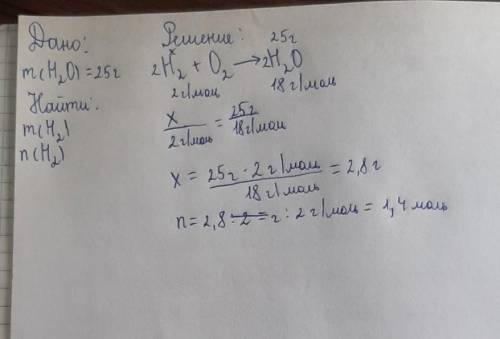 Дано:
m(H₂O)=25г
Найти:
m(H₂)
n(H₂)
Решение:
x 25г
2H₂ + O₂ → 2H₂O
2г/моль 18г/моль
x/2г/моль = 25г/18г/моль
x = 25г · 2г/моль / 18г/моль = 2,8г
n = 2,8 г : 2г/моль = 1,4 моль